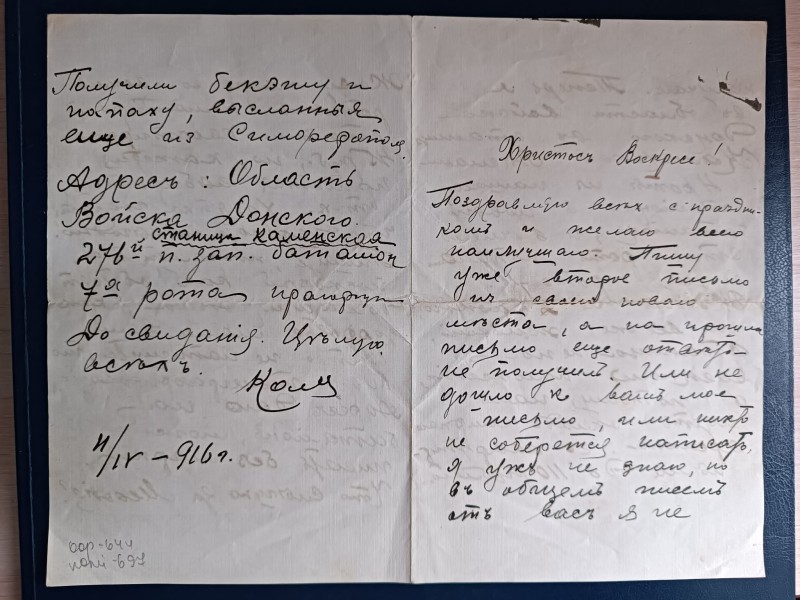 Получили бекэшу и
папаху, высланныя
еще из Симферополя.
Адресъ: Область
Войска Донского.
станица Каменская
276й п. зап. баталіон
7ая рота
До свиданія. Цѣлую
всѣхъ.
Коля
/IV – 916 г.
Христосъ Воскресе!
Поздравляю всѣх с праздни-
комъ и желаю всего
наилучшаго. Пишу
уже второе письмо
из своего новаго
мѣста, а на прошлое
письмо еще отвѣта
не получил. Или не
дошло к вамъ мое
письмо, или никто
не соберется написать,
я ужъ не знаю, но
въ общемъ писемъ
отъ васъ я не